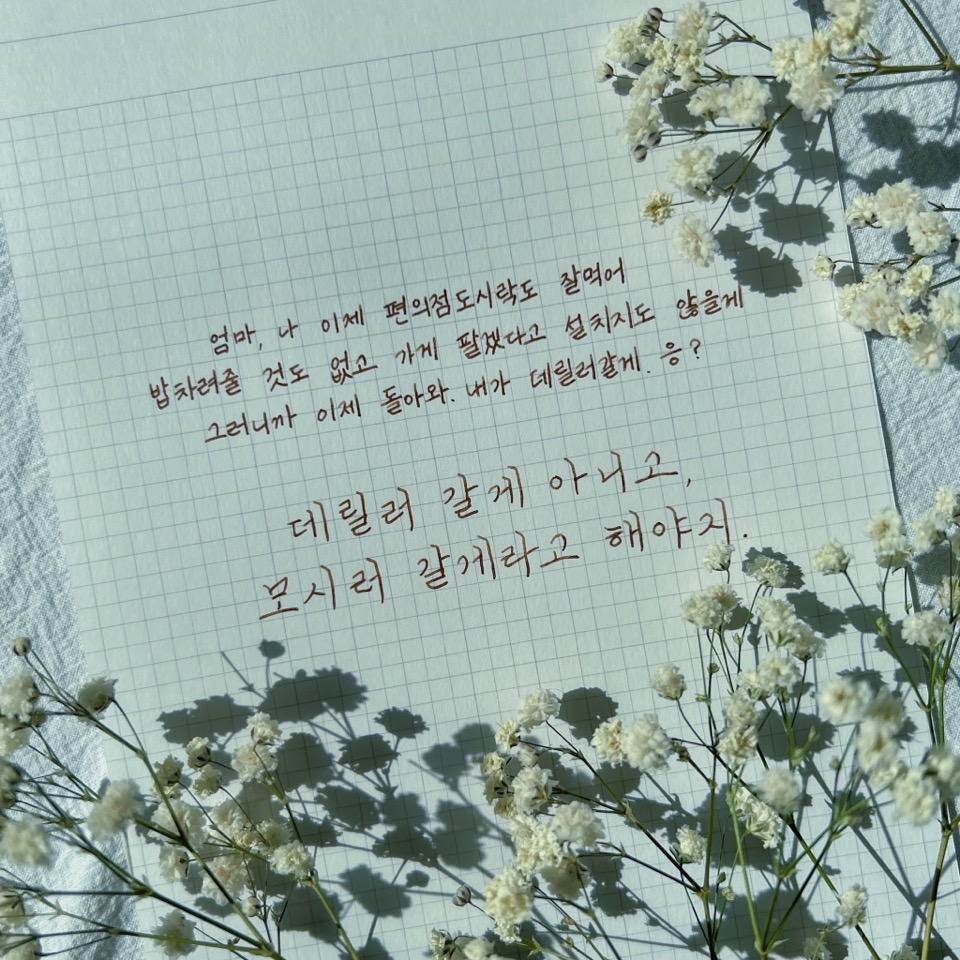 엄마, 나 이제 편의점도시락도 잘먹어
밥차려줄 것도 없고 가게 팔겠다고 설치지도 않을게
그러니까 이제 돌아와. 내가 데릴러갈게. 응?
데릴러 갈게 아니고,
모시러 갈게라고 해야지.